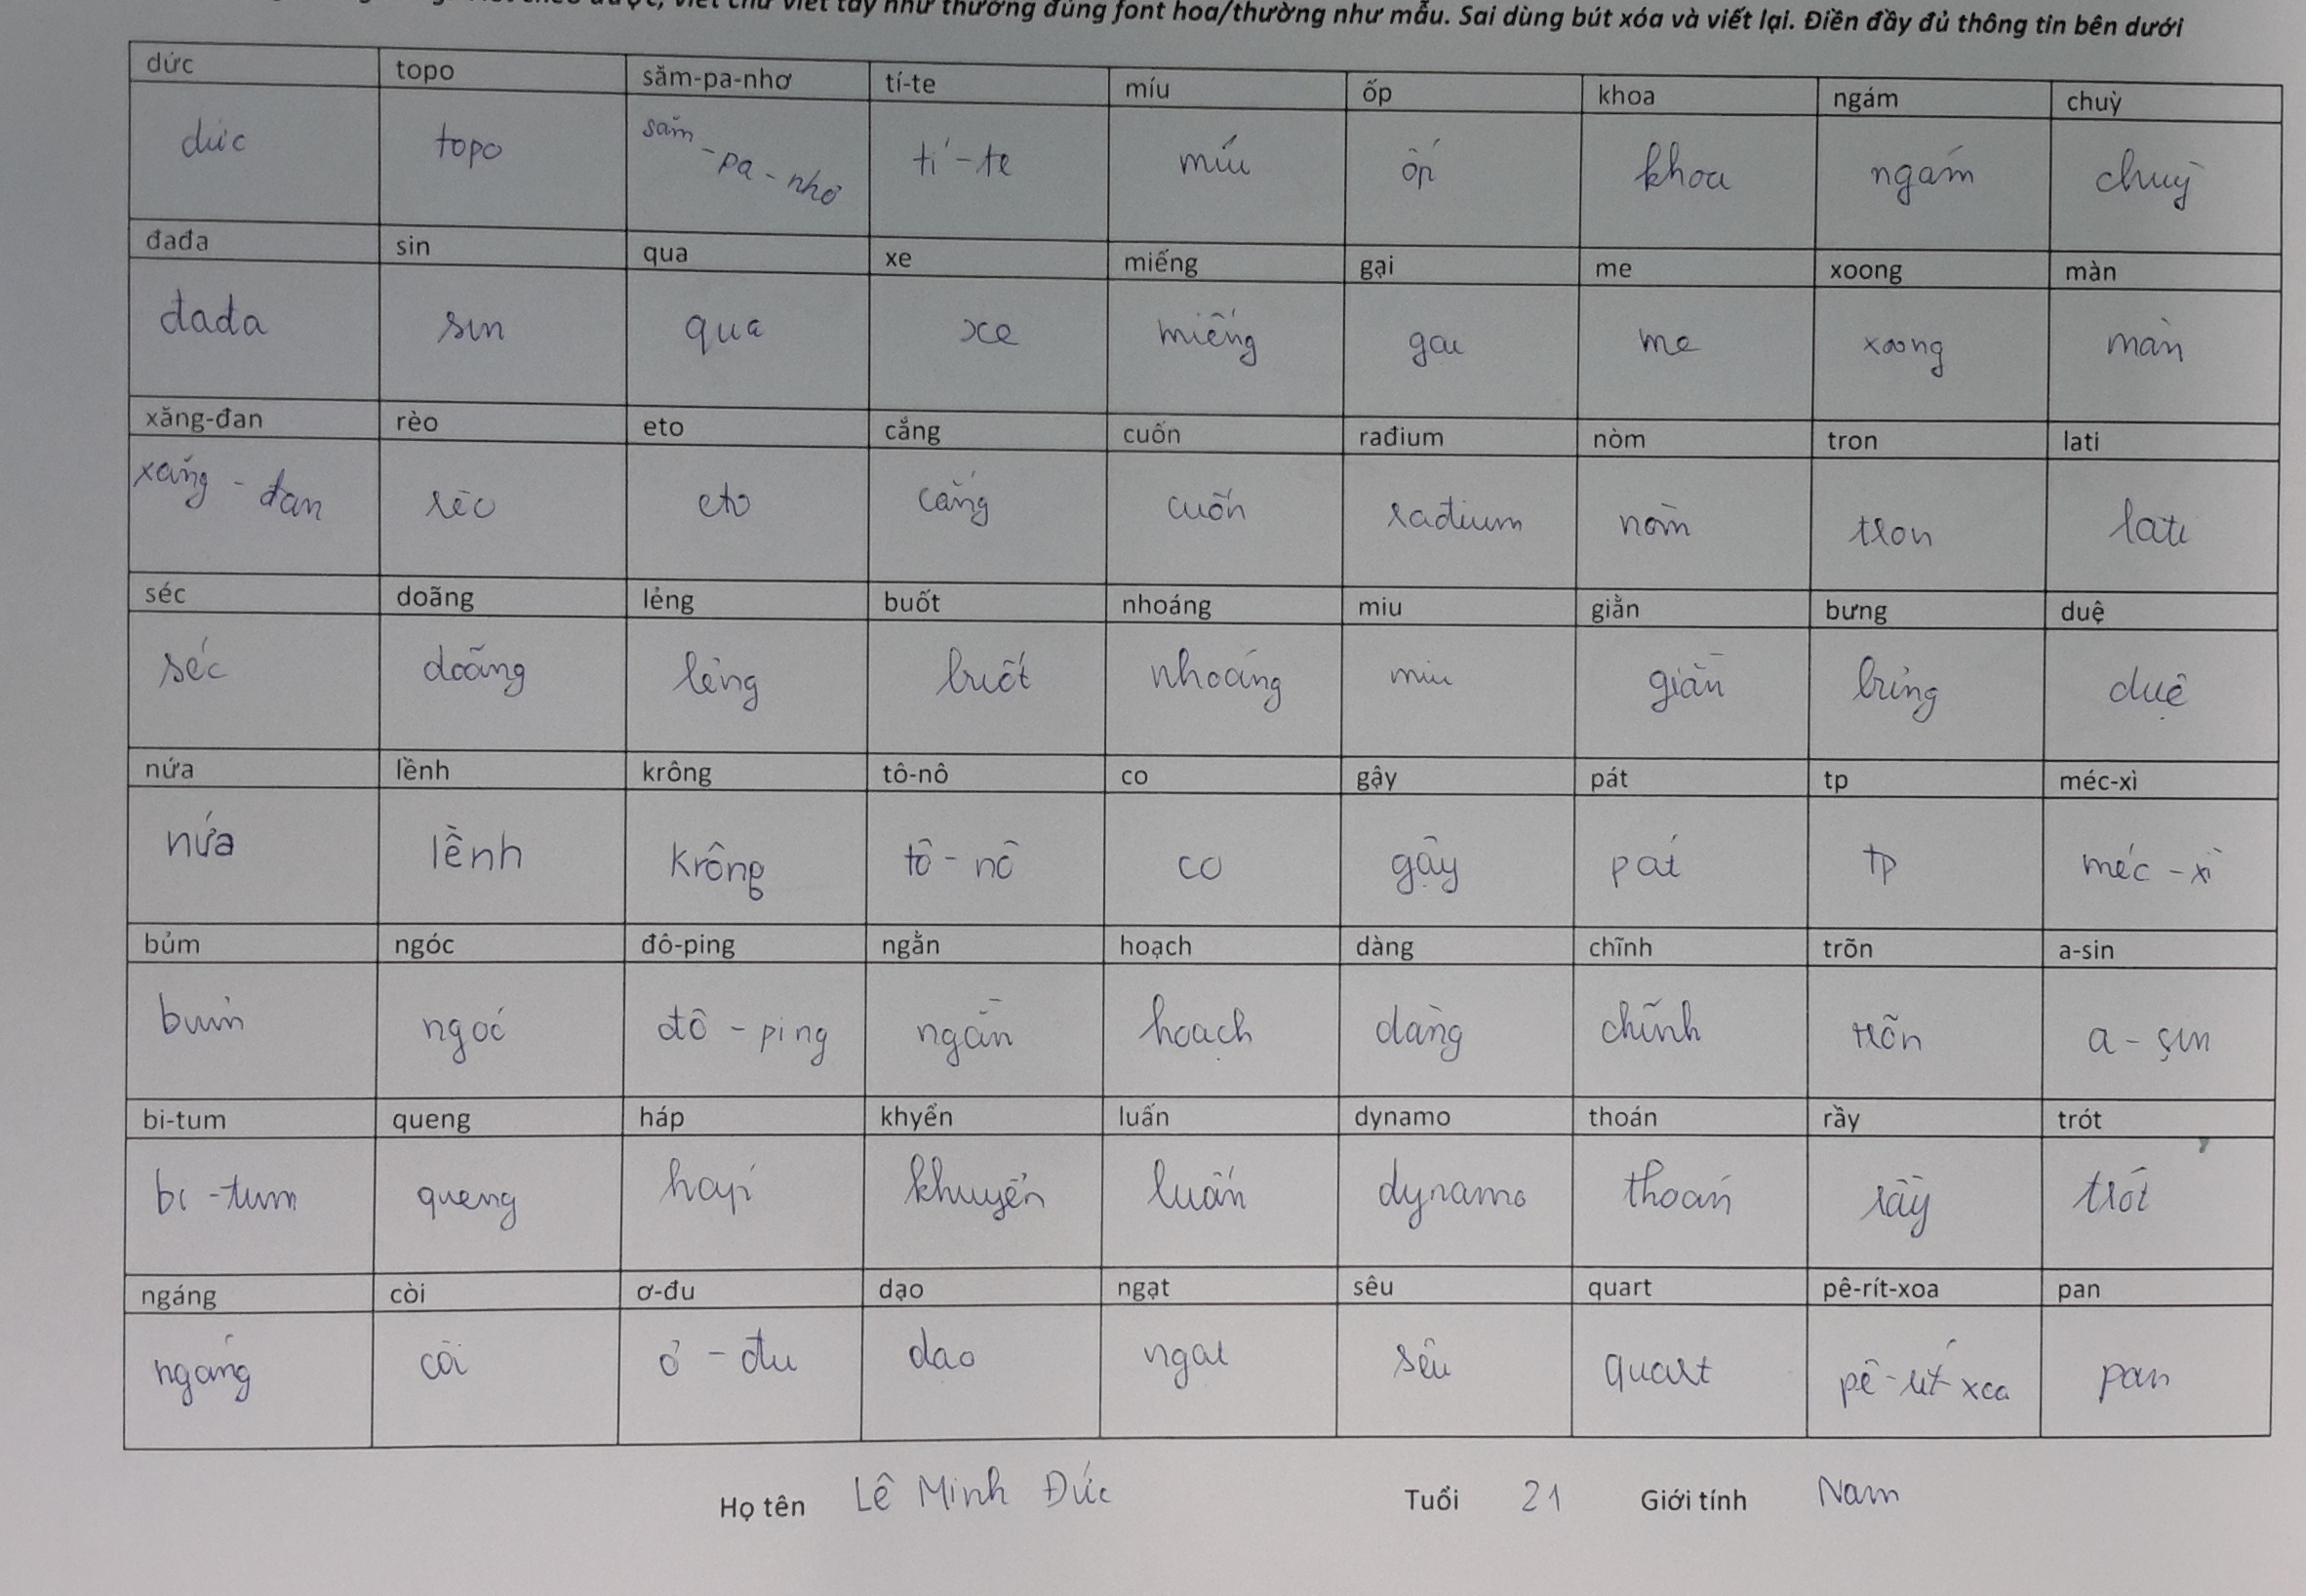 viết chữ viết tay như thường đúng font hoa/thường như mẫu. Sai dùng bút xóa và viết lại. Điền đầy đủ thông tin bên dưới
dức topo săm-pa-nhơ tí-te míu ốp khoa ngám chuỳ
dức topo săm-pa-nhơ tí-te míu ốp khoa ngám chuỳ
đađa sin qua xe miếng gại me xoong màn
đađa sin qua xe miếng gại me xoong màn
xăng-đan rèo eto cẳng cuốn rađium nòm tron lati
xăng-đan rèo eto cẳng cuốn rađium nòm tron lati
séc doãng lẻng buốt nhoáng miu giằn bưng duệ
séc doãng lẻng buốt nhoáng miu giằn bưng duệ
nứa lềnh krông tô-nô co gậy pát tp méc-xì
nứa lềnh krông tô-nô co gậy pát tp méc-xì
bủm ngóc đô-ping ngằn hoạch dàng chĩnh trõn a-sin
bủm ngóc đô-ping ngằn hoạch dàng chĩnh trõn a-sin
bi-tum queng háp khyển luấn dynamo thoán rầy trót
bi-tum queng háp khuyển luấn dynamo thoán rầy trót
ngáng còi ơ-đu dạo ngạt sêu quart pê-rít-xoa pan
ngáng còi ơ-đu dạo ngạt sêu quart pê-rít xoa pan
Họ tên Lê Minh Đức Tuổi 21 Giới tính Nam